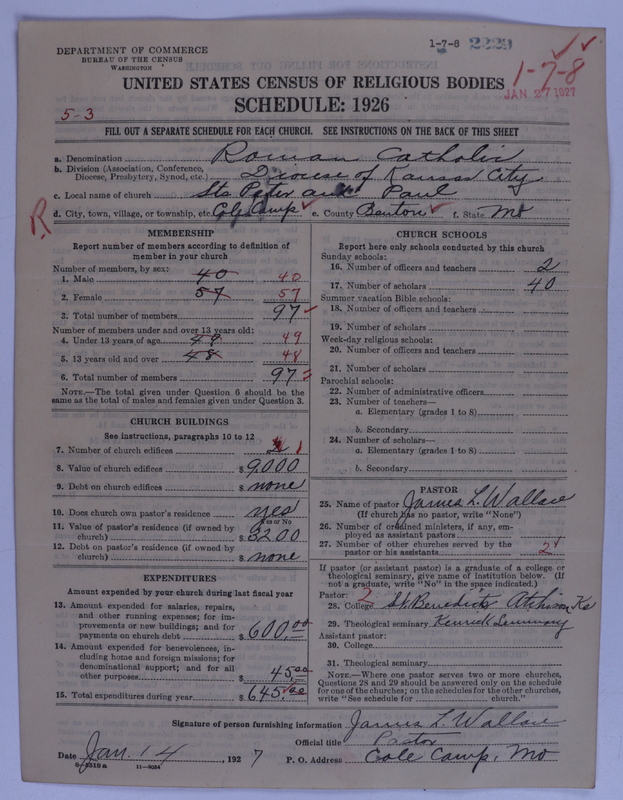 DEPARTMENT OF COMMERCE
BUREAU OF THE CENSUS
WASHINGTON
1-7-8 2229
1-7-8
JAN 27 1927
UNITED STATES CENSUS OF RELIGIOUS BODIES
SCHEDULE: 1926
5-3
FILL OUT A SEPARATE SCHEDULE FOR EACH CHURCH. SEE INSTRUCTIONS ON THE BACK OF THIS SHEET
a. Denomination Roman Catholic
b. Division (Association, Conference, Diocese, Presbytery, Synod, etc.) Diocese of Kansas City
c. Local name of church Sts Peter and Paul
R d. City, town, village, or township, etc. Cole Camp e. County Benton f. State Mo
MEMBERSHIP
Report number of members according to definition of
member in your church
Number of members, by sex:
1. Male 40 40
2. Female 57 57
3. Total number of members 97
Number of members under and over 13 years old:
4. Under 13 years of age 49 49
5. 13 years old and over 48 48
6. Total number of members 97
NOTE.—The total given under Question 6 should be
same as the total of males and females given under Question 3.
CHURCH BUILDINGS
See instructions, paragraphs 10 to 12
7. Number of church edifices 1
8. Value of church edifices $ 9000
9. Debt on church edifices $ none
10. Does church own pastor's residence yes
Yes or No
11. Value of pastor's residence (if owned by
church) $ 3200
12. Debt on pastor's residence (if owned by
church) $ none
EXPENDITURES
Amount expended by your church during last fiscal year
13. Amount expended for salaries, repairs,
and other running expenses; for im-
provements or new buildings; and for
payments on church debt $ 600.00
14. Amount expended for benevolences, in-
cluding home and foreign missions; for
denominational support; and for all
other purposes $ 45.00
15. Total expenditures during year $ 645.00
CHURCH SCHOOLS
Report here only schools conducted by this church
Sunday schools:
16. Number of officers and teachers 2
17. Number of scholars 40
Summer vacation Bible schools:
18. Number of officers and teachers
19. Number of scholars
Week-day religious schools:
20. Number of officers and teachers
21. Number of scholars
Parochial schools:
22. Number of administrative officers
23. Number of teachers—
a. Elementary (grades 1 to 8)
b. Secondary
24. Number of scholars—
a. Elementary (grades 1 to 8)
b. Secondary
PASTOR
25. Name of pastor James L. Wallace
(If church has no pastor, write "None")
26. Number of ordained ministers, if any, em-
ployed as assistant pastors
27. Number of other churches served by the
pastor or his assistants 2
If pastor (or assistant pastor) is a graduate of a college or
theological seminary, give name of institution below. (If
not a graduate, write "No" in the space indicated.)
Pastor: 2
28. College St. Benedicts Atchison, Ks
29. Theological seminary Kenrick Seminary
Assistant pastor:
30. College
31. Theological seminary
NOTE.—Where one pastor serves two or more churches,
Questions 28 and 29 should be answered only on the schedule
for one of the churches; on the schedules for the other churches,
write "See schedule for church."
Signature of person furnishing information James L. Wallace
Official title Pastor
Date Jan. 14, 1927 P. O. Address Cole Camp, Mo
11—9034